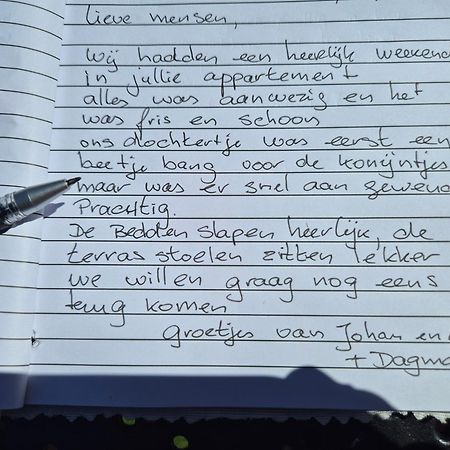 lieve mensen,
wij hadden een heerlijk weekend
in jullie appartement
alles was aanwezig en het
was fris en schoon
ons dochtertje was eerst een
beetje bang voor de konijntjes
maar was er snel aan gewend
Prachtig.
De Bedden slapen heerlijk, de
terras stoelen zitten lekker
we willen graag nog eens
terug komen
groetjes van Johan en
+ Dagma